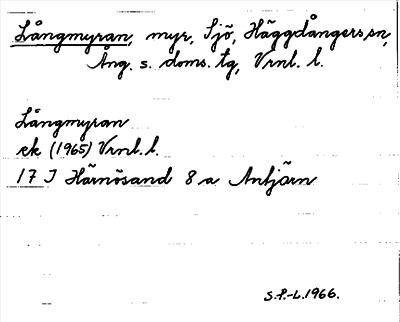 Långmyran, myr, Sjö, Häggdångers sn,
Ång. s. doms. tg, Vrnl. l.
Långmyran
ek (1965) Vrnl. l.
17 J Härnösand 8 a Antjärn
S.P.-L. 1966.